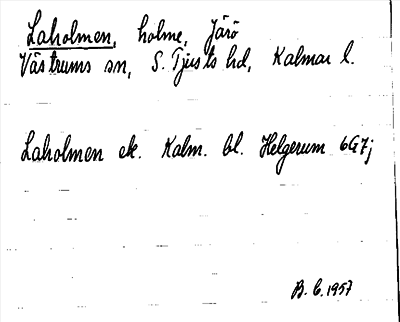 Laholmen, holme, Järö
Västrums sn, S. Tjusts hd, Kalmar l.
Laholmen ek. Kalm. bl. Helgerum 6G7j
B. C. 1957